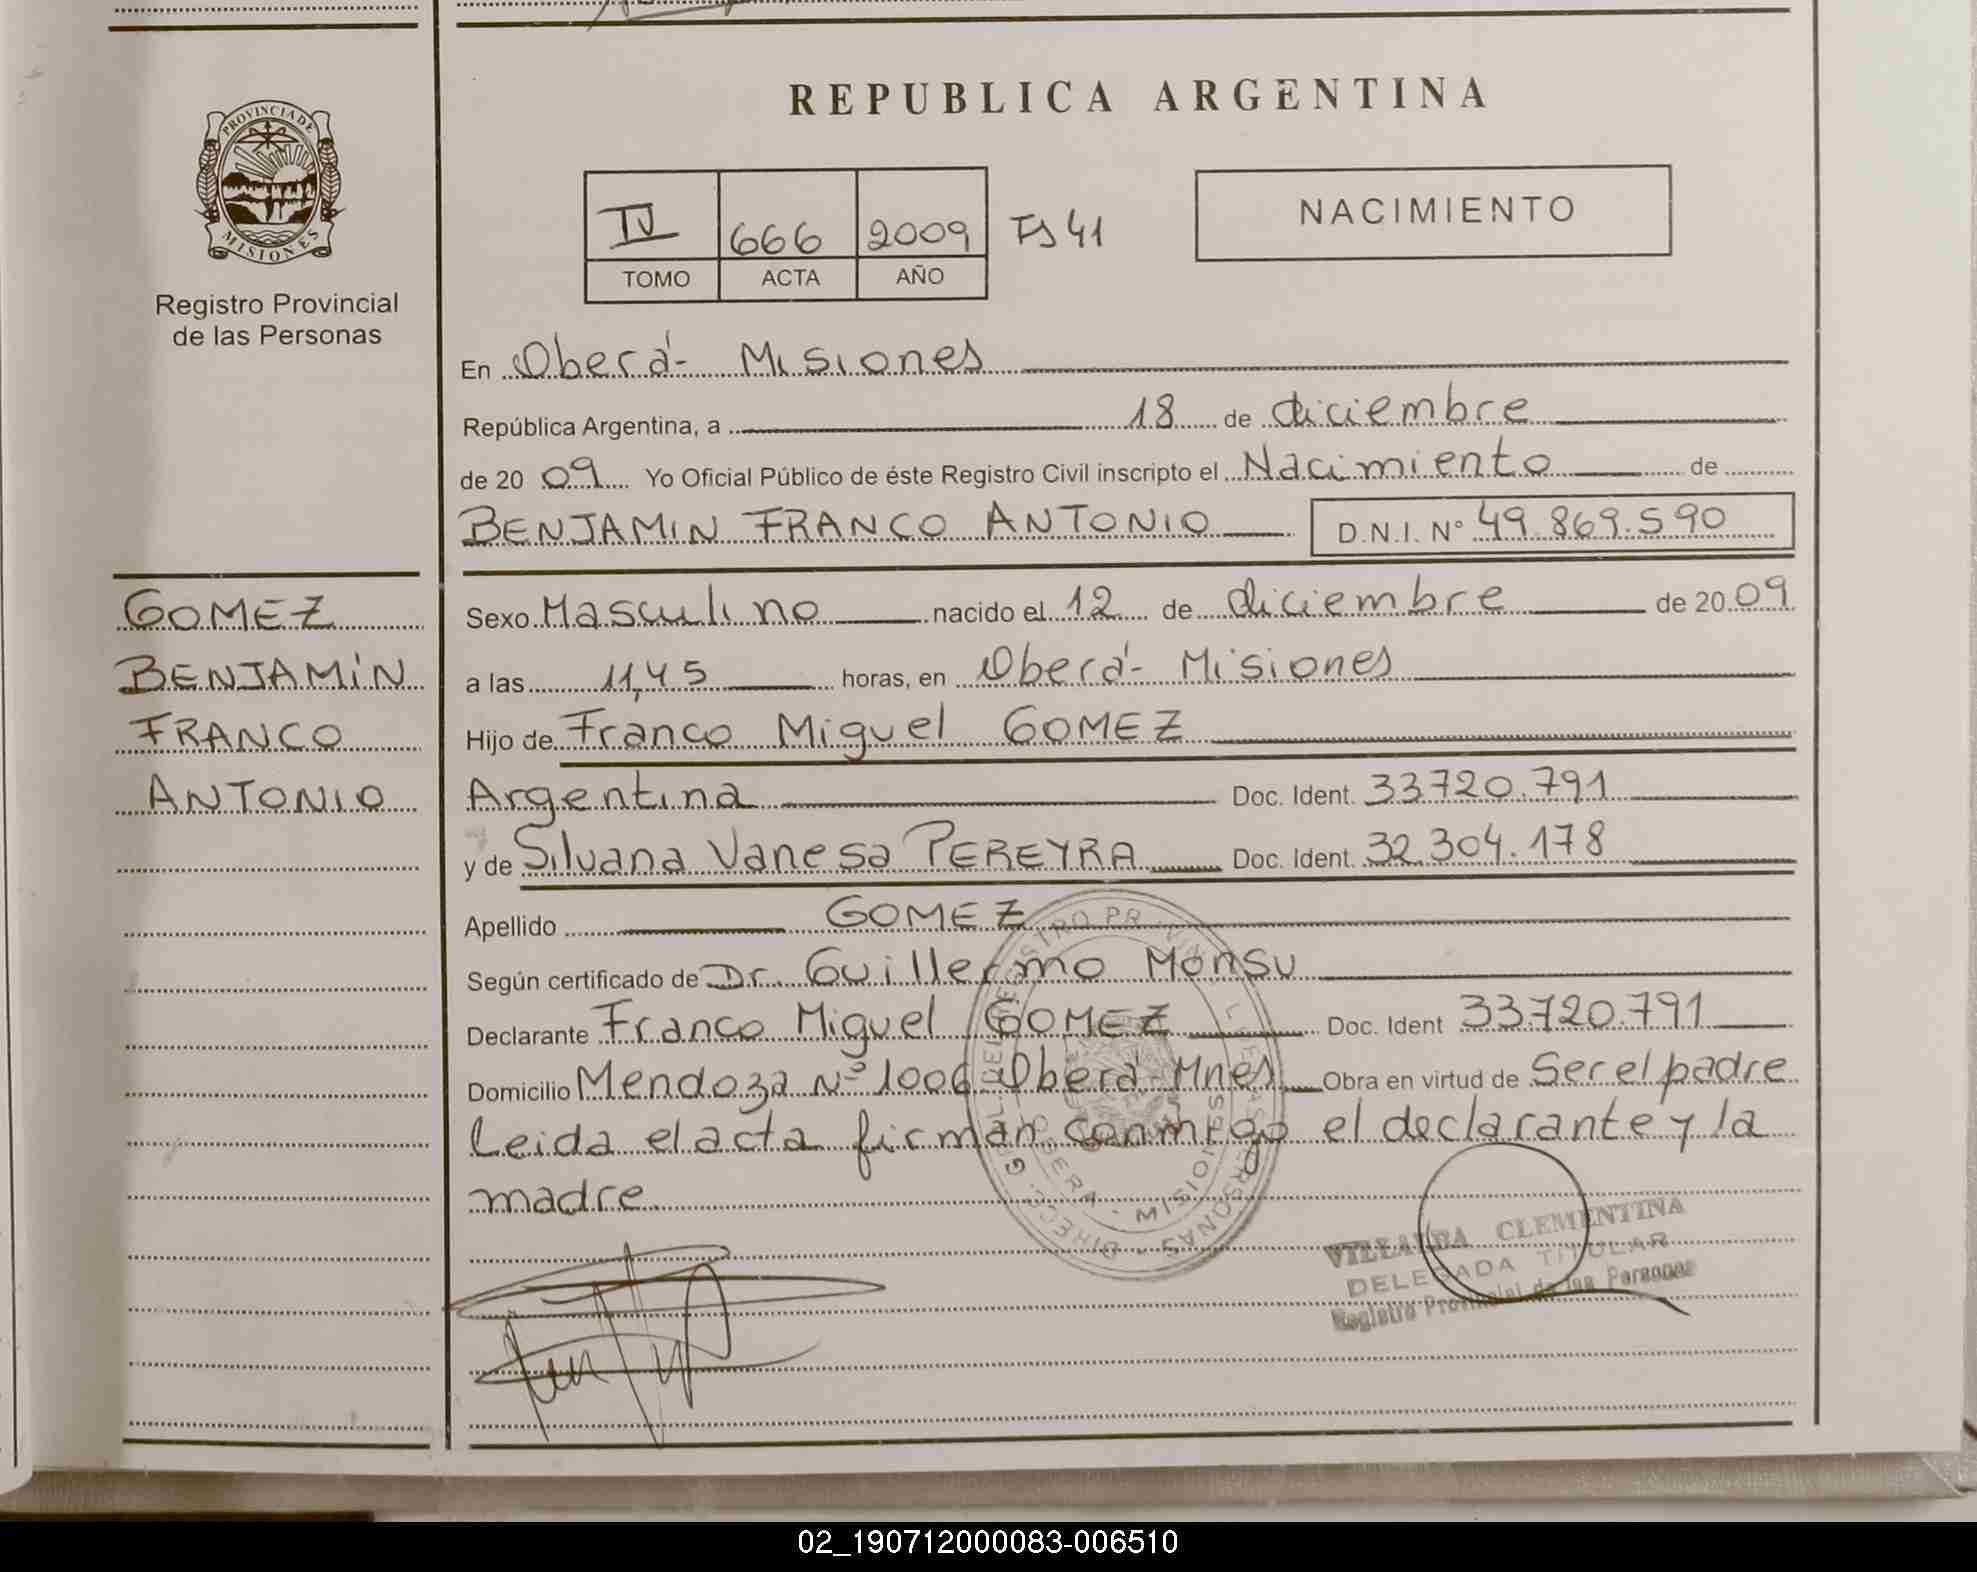 REPUBLICA ARGENTINA
PROVINCIA DE
MISIONES
Registro Provincial
de las Personas
IV 666 2009 Fs 41
TOMO ACTA AÑO
NACIMIENTO
En Oberá- Misiones
República Argentina, a 18 de diciembre
de 20 09 Yo Oficial Público de éste Registro Civil inscripto el Nacimiento de
BENJAMIN FRANCO ANTONIO D.N.I. Nº 49.869.590
GOMEZ
BENJAMÍN
FRANCO
ANTONIO
Sexo Masculino nacido el 12 de diciembre de 20 09
a las 11,45 horas, en Oberá- Misiones
Hijo de Franco Miguel GOMEZ
Argentina Doc. Ident. 33720.791
y de Silvana Vanesa PEREYRA Doc. Ident. 32.304.178
Apellido GOMEZ
Según certificado de Dr. Guillermo Monsu
Declarante Franco Miguel GOMEZ Doc. Ident 33720.791
Domicilio Mendoza Nº 1006 Oberá-Mnes Obra en virtud de Ser el padre
Leida el acta firman conmigo el declarante y la
madre
OBERA - MISIONES
VILLALBA CLEMENTINA
DELEGADA TITULAR
Registro Provincial de las Personas
02_190712000083-006510